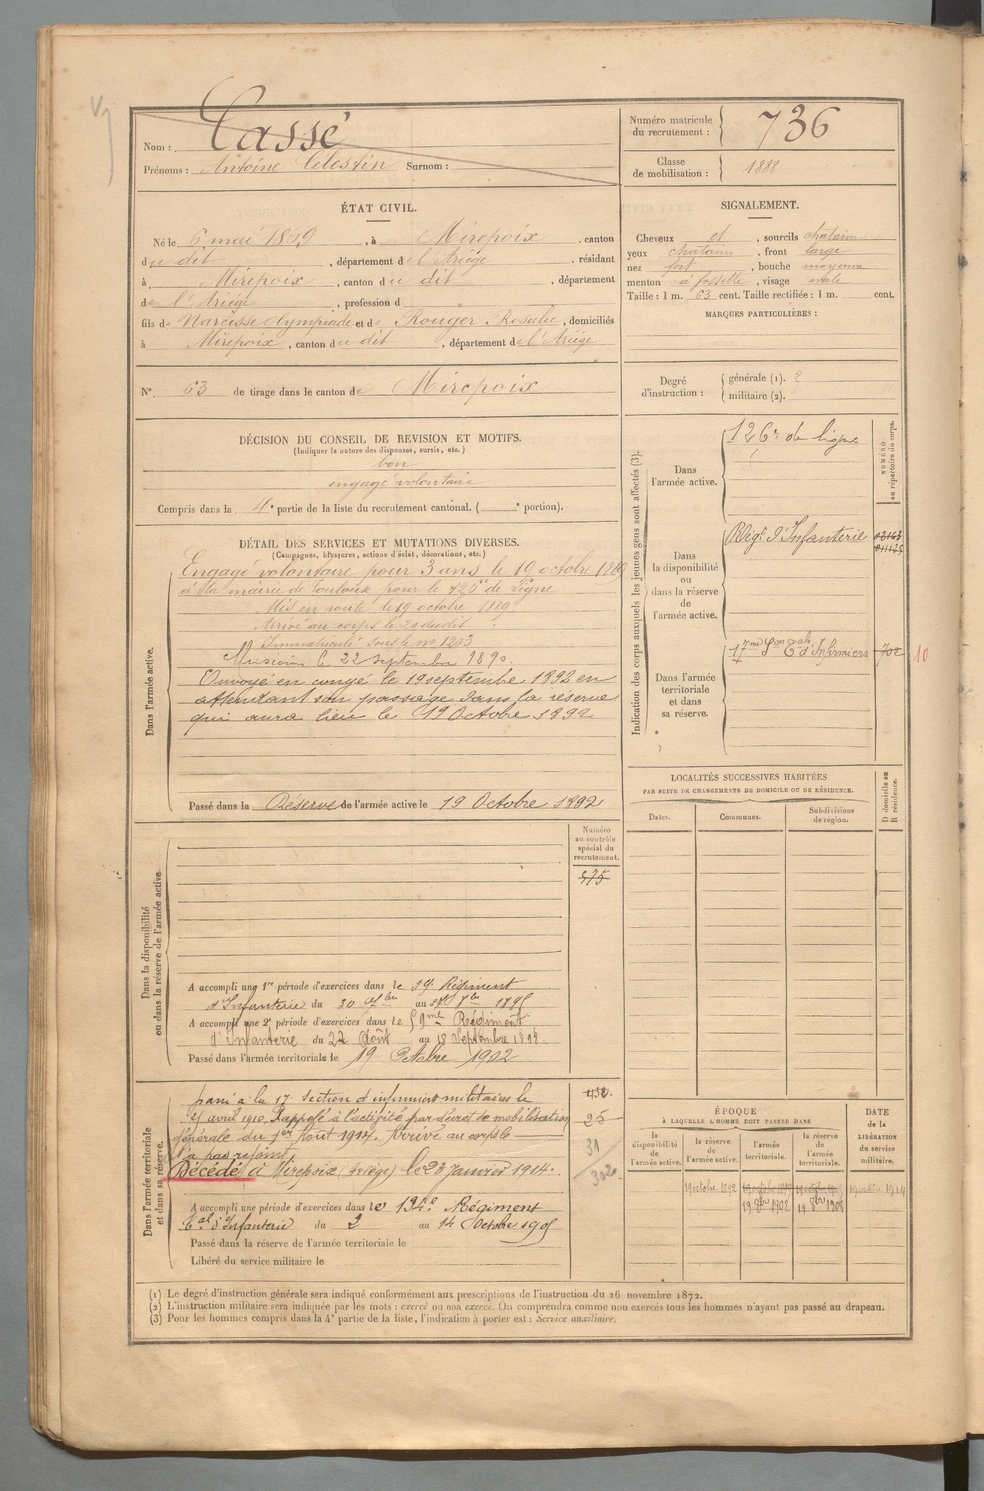 Nom : Cassé
Prénoms : Antoine Célestin Surnom :
Numéro matricule du recrutement : 736
Classe de mobilisation : 1888
ÉTAT CIVIL.
Né le 6 mai 1869, à Mirepoix, canton
du dit, département de l'Ariège, résidant
à Mirepoix, canton du dit, département
de l'Ariège, profession d
fils de Narcisse Olympiade et de Rouger Rosalie, domiciliés
à Mirepoix, canton du dit, département de l'Ariège
N° 63 de tirage dans le canton de Mirepoix
SIGNALEMENT.
Cheveux et, sourcils chatain
yeux chatain, front large
nez fort, bouche moyenne
menton à fossette, visage ovale
Taille : 1 m. 63 cent. Taille rectifiée : 1 m. cent.
MARQUES PARTICULIÈRES :
Degré d'instruction : générale (1). 2
militaire (2).
DÉCISION DU CONSEIL DE REVISION ET MOTIFS.
(Indiquer la nature des dispenses, sursis, etc.)
bon
engagé volontaire
Compris dans la 4e partie de la liste du recrutement cantonal. ( e portion).
DÉTAIL DES SERVICES ET MUTATIONS DIVERSES.
(Campagnes, blessures, actions d'éclat, décorations, etc.)
Dans l'armée active.
Engagé volontaire pour 3 ans le 19 octobre 1889
à la mairie de Toulouse pour le 126e de Ligne
Mis en route le 19 octobre 1889
Arrivé au corps le 20 dudit
Immatriculé sous le n° 1203
Musicien le 22 septembre 1890.
Envoyé en congé le 19 septembre 1892 en
attendant son passage dans la réserve
qui aura lieu le 19 Octobre 1892
Passé dans la Réserve de l'armée active le 19 Octobre 1892
Numéro au contrôle spécial du recrutement.
Dans la disponibilité ou dans la réserve de l'armée active
A accompli une 1re période d'exercices dans le 59 Régiment
d'Infanterie du 30 7bre au 8bre 1895
A accompli une 2e période d'exercices dans le 59me Régiment
d'Infanterie du 22 Août au 18 Septembre 1898
Passé dans l'armée territoriale le 19 Octobre 1902
Dans l'armée territoriale et dans sa réserve.
passé à la 17e Section d'infirmiers militaires le
avril 1910 Rappelé à l'activité par décret de mobilisation
générale du 1er Août 1914. Arrivé au corps le
N'a pas rejoint
Décédé à Mirepoix (Ariège) le 23 Janvier 1914.
A accompli une période d'exercices dans le 134e Régiment
Tal d'Infanterie du 2 au 14 Octobre 1905
Passé dans la réserve de l'armée territoriale le
Libéré du service militaire le
25
31
302
Indication des corps auxquels les jeunes gens sont affectés (3).
NUMÉRO au répertoire du corps.
Dans l'armée active.
126e de ligne
Dans la disponibilité ou dans la réserve de l'armée active.
Régt d'Infanterie
Dans l'armée territoriale et dans sa réserve.
17me Son Tale d'Infirmiers 702
10
LOCALITÉS SUCCESSIVES HABITÉES
PAR SUITE DE CHANGEMENTS DE DOMICILE OU DE RÉSIDENCE.
Dates. Communes. Subdivisions de région. D domicile ou R résidence.
ÉPOQUE
À LAQUELLE L'HOMME DOIT PASSER DANS
la disponibilité de l'armée active. la réserve de l'armée active. l'armée territoriale. la réserve de l'armée territoriale.
DATE de la LIBÉRATION du service militaire.
19 octobre 1892 19 8bre 1902 19 8bre 1908 19 octobre 1914
(1) Le degré d'instruction générale sera indiqué conformément aux prescriptions de l'instruction du 26 novembre 1872.
(2) L'instruction militaire sera indiquée par les mots : exercé ou non exercé. On comprendra comme non exercés tous les hommes n'ayant pas passé au drapeau.
(3) Pour les hommes compris dans la 4e partie de la liste, l'indication à porter est : Service auxiliaire.